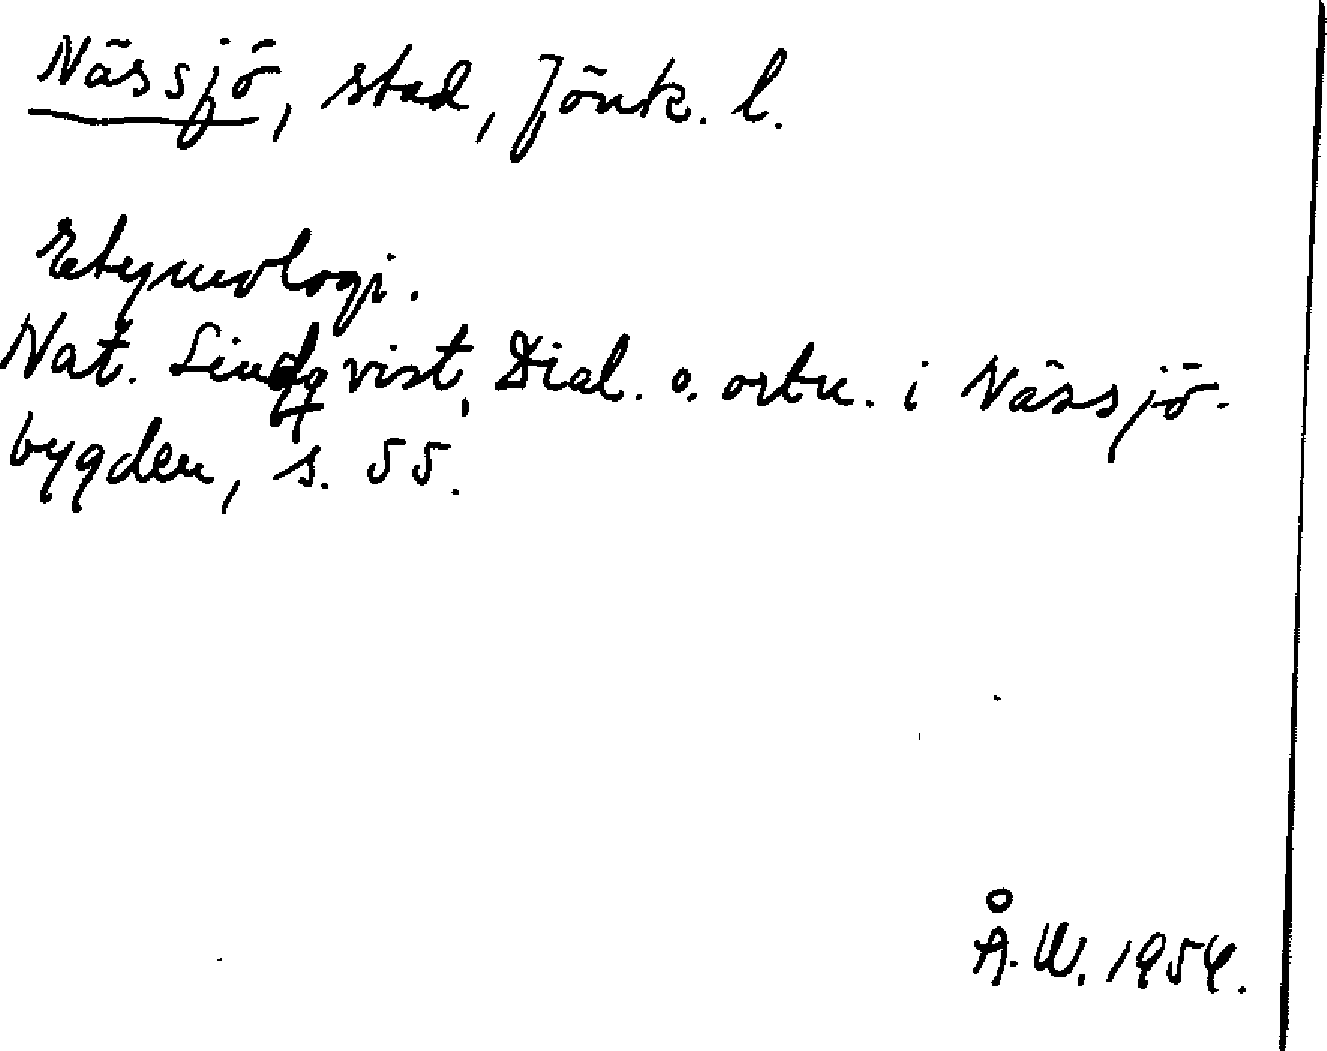 Nässjö, stad, Jönk. l.
Etymologi.
Nat. Lindqvist, Dial. o. ortn. i Nässjö-
bygden, s. 55.
Å. W. 1954.